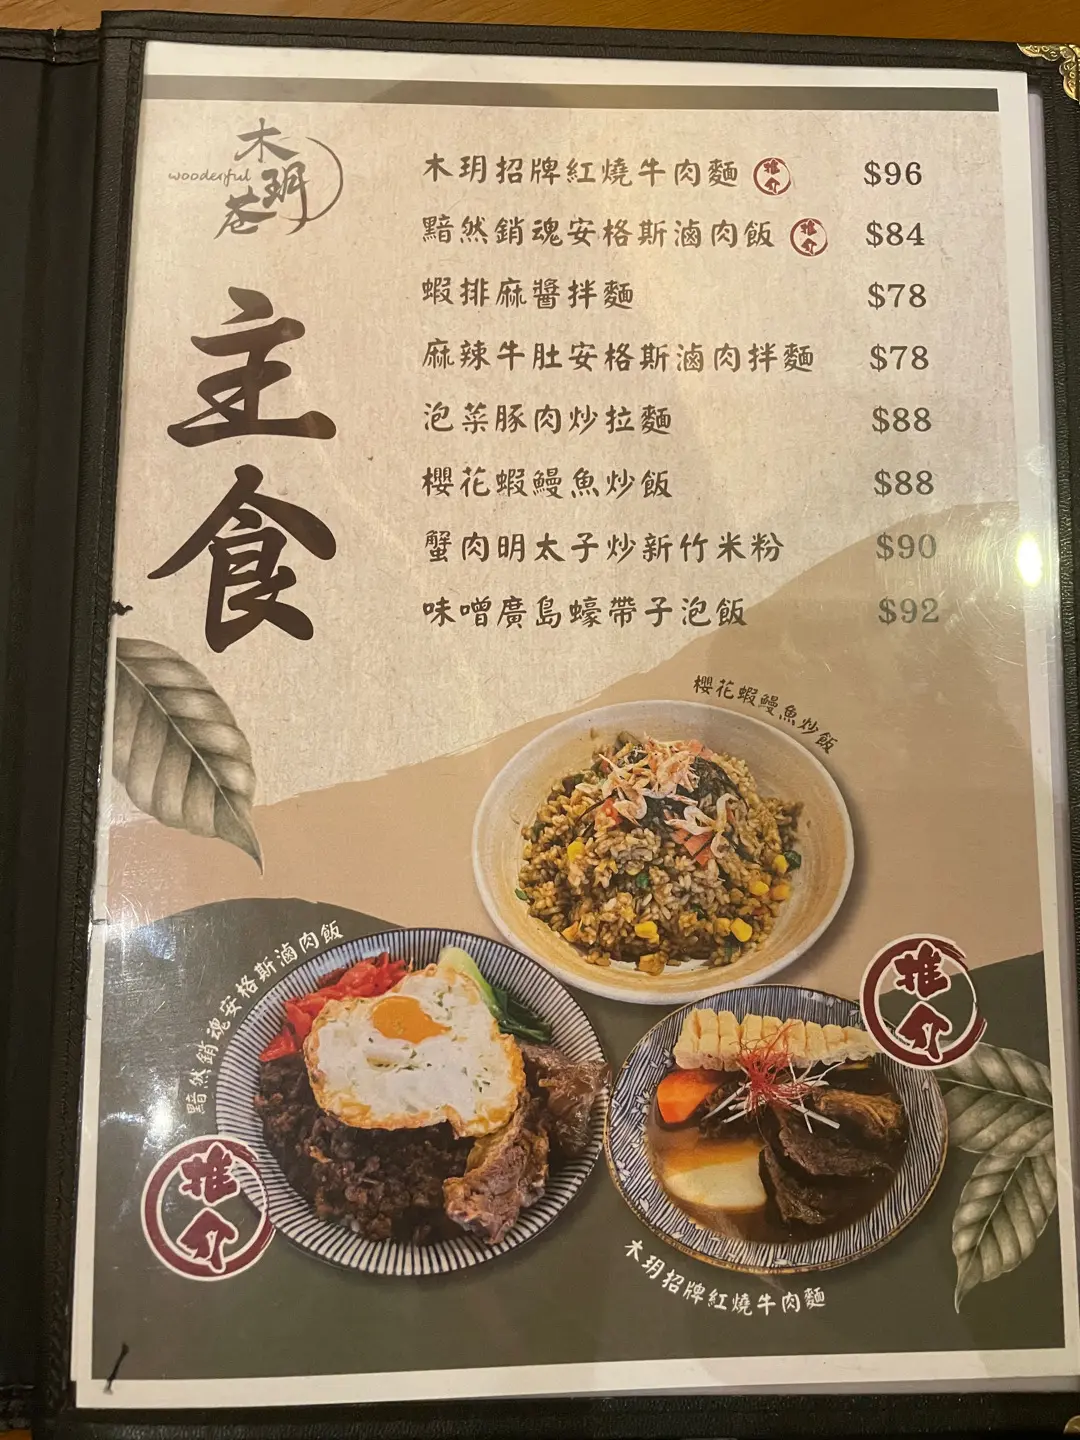 木玥巷
wooderful
主食
木玥招牌紅燒牛肉麵 推介 $96
黯然銷魂安格斯滷肉飯 推介 $84
蝦排麻醬拌麵 $78
麻辣牛肚安格斯滷肉拌麵 $78
泡菜豚肉炒拉麵 $88
櫻花蝦鰻魚炒飯 $88
蟹肉明太子炒新竹米粉 $90
味噌廣島蠔帶子泡飯 $92
櫻花蝦鰻魚炒飯
黯然銷魂安格斯滷肉飯
推介
推介
木玥招牌紅燒牛肉麵